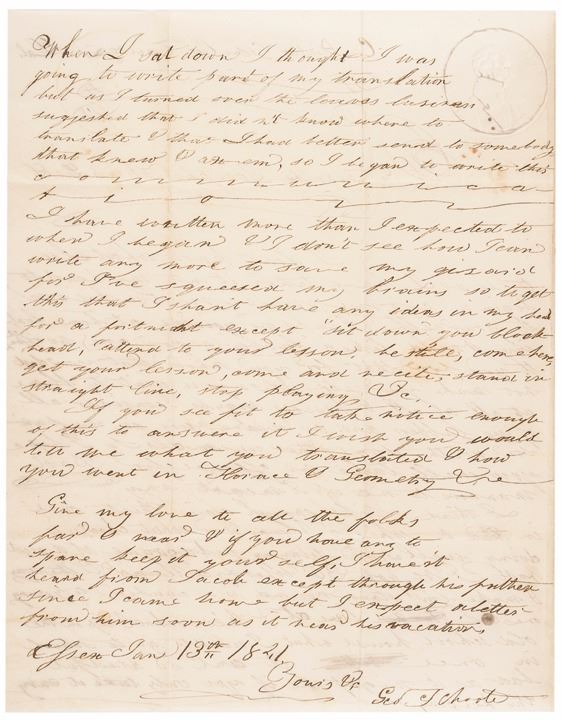 When I sat down I thought I was
going to write part of my translation
but as I turned over the leaves lusiness
suggested that I did n't know where to
translate & that I had better send to somebody
that knew & ax em, so I began to write this
c o m m u n i c a
t i o n
I have written more than I expected to
when I began & I don't see how I can
write any more to save my gisard
for I've squeesed my brains so to get
this that I shant have any ideas in my head
for a fortnight except "sit down you block-
head, attend to your lesson, be still, come here,
get your lesson, come and recite, stand in
straight line, stop playing, &c.
If you see fit to take notice enough
of this to answere it I wish you would
tell me what you translated & how
you went in Horace & Geometry &c
Give my love to all the folks
far & near & if you have any to
spare keep it your self, I have n't
heard from Jacob except through his
since I came home but I expect a letter
from him soon as it nears his vacation.
Essex Jan 13th 1841
Yours &c
Geo Choate